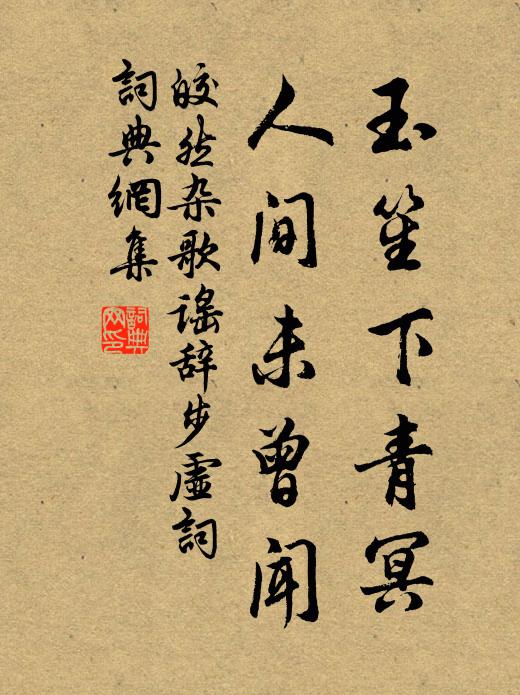 玉笙下青冥
人间未曾闻
皎然杂歌谣辞步虚詞
詞典網集
詞典网印